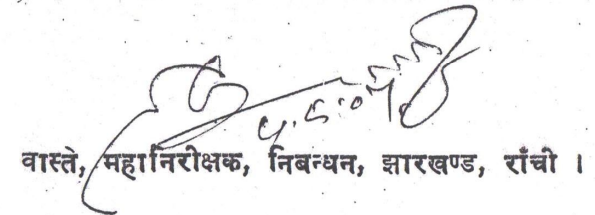 वास्ते, महानिरीक्षक, निबन्धन, झारखण्ड, राँची ।